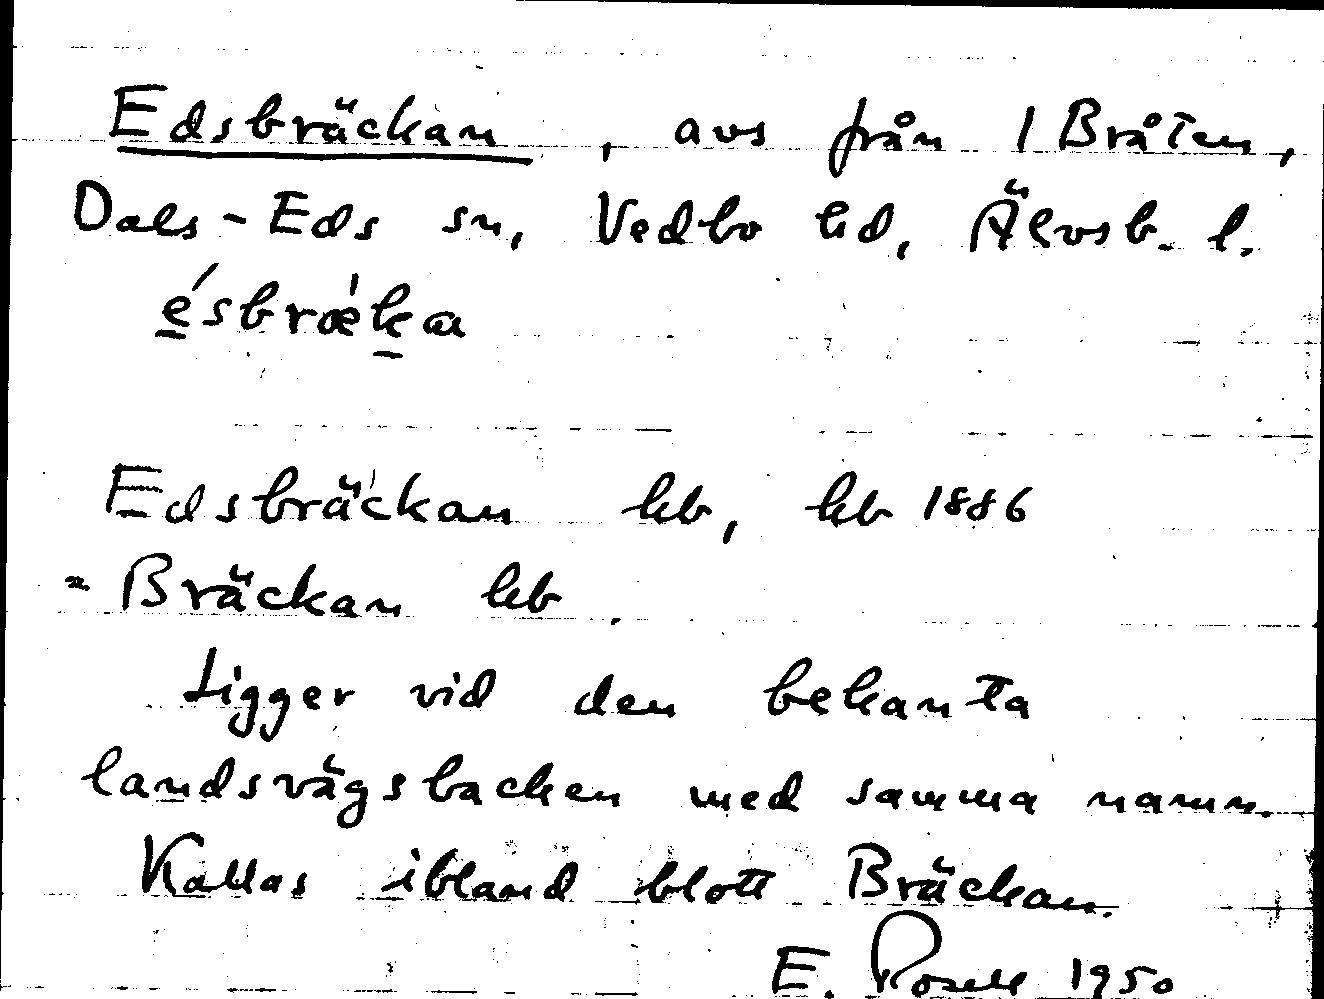 Edsbräckan, avs från 1 Bråten,
Dals-Eds sn, Vedbo hd, Älvsb. l.
é̲sbræ̍k̲a
Edsbräckan hb, hb 1886
= Bräckan hb.
Ligger vid den bekanta
landsvägsbacken med samma namn.
Kallas ibland blott Bräckan.
E. Rosell 1950